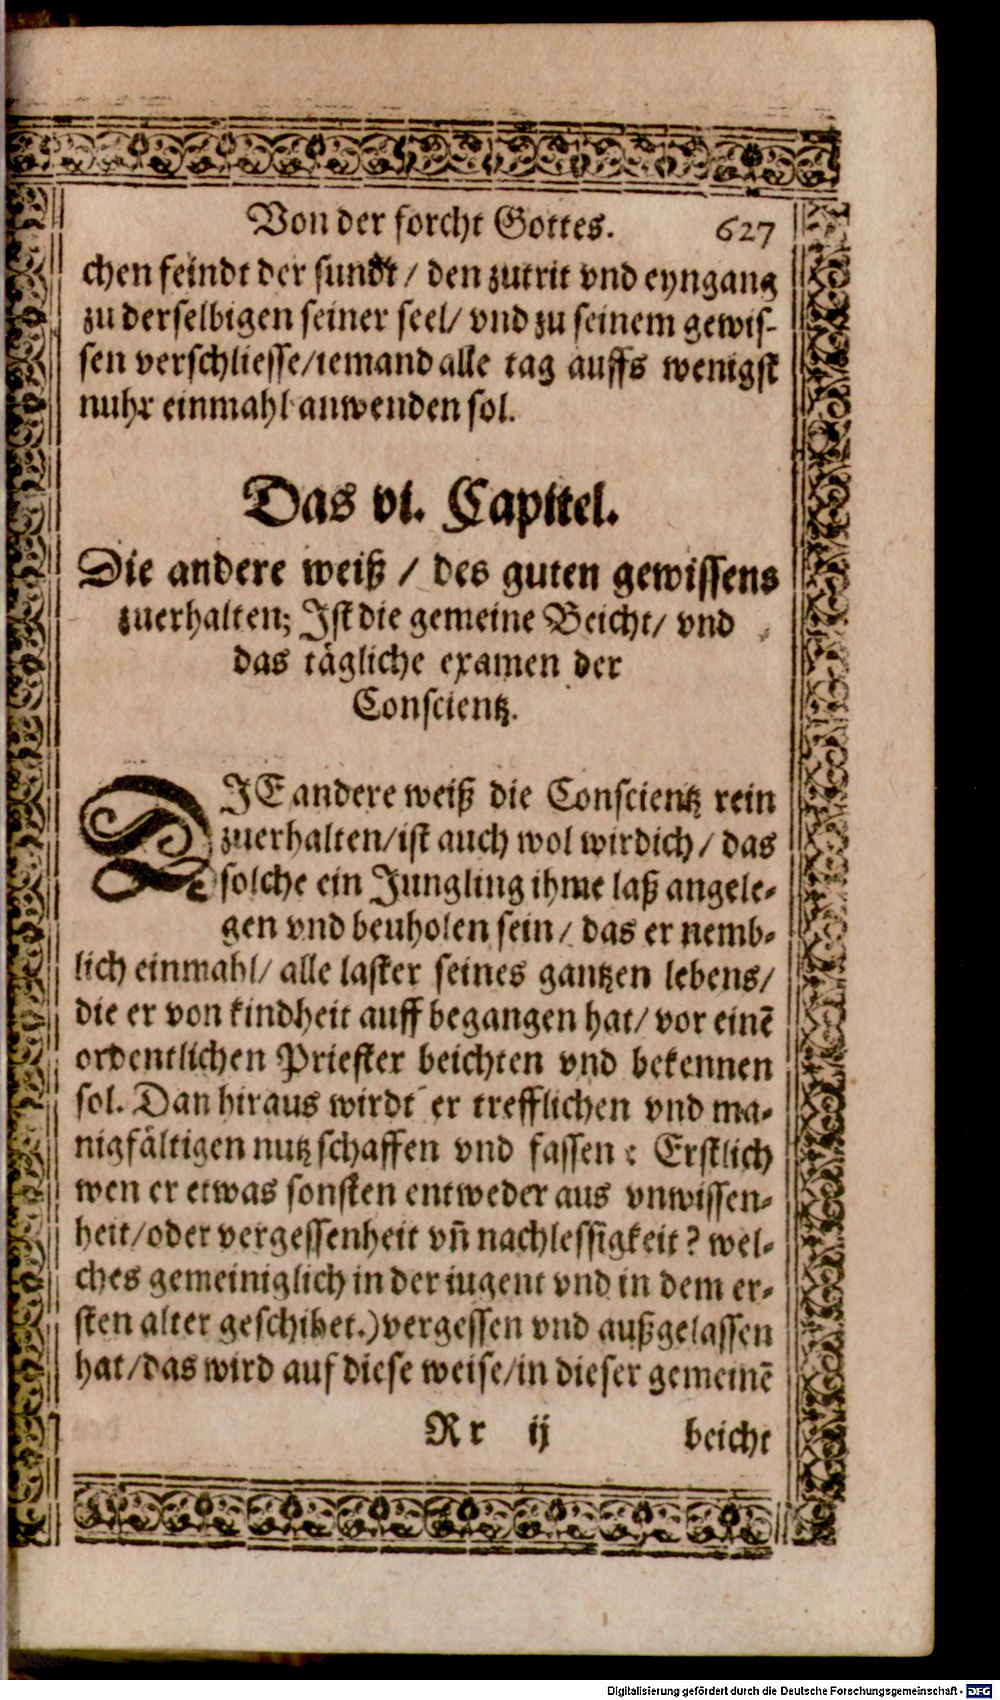 Von der forcht Gottes. 627
chen feindt der sundt / den zutrit vnd eyngang
zu derselbigen seiner seel / vnd zu seinem gewis-
sen verschliesse / iemand alle tag auffs wenigst
nuhr einmahl anwenden sol.
Das vi. Capitel.
Die andere weiß / des guten gewissens
zuerhalten; Ist die gemeine Beicht / vnd
das tägliche examen der
Conscientz.
DIE andere weiß die Conscientz rein
zuerhalten / ist auch wol wirdich / das
solche ein Jungling ihme laß angele-
gen vnd beuholen sein / das er nemb-
lich einmahl / alle laster seines gantzen lebens /
die er von kindheit auff begangen hat / vor einē
ordentlichen Priester beichten vnd bekennen
sol. Dan hiraus wirdt er trefflichen vnd ma-
nigfältigen nutz schaffen vnd fassen: Erstlich
wen er etwas sonsten entweder aus vnwissen-
heit / oder vergessenheit vn̄ nachlessigkeit? wel-
ches gemeiniglich in der iugent vnd in dem er-
sten alter geschihet.) vergessen vnd außgelassen
hat / das wird auf diese weise / in dieser gemeinē
Rr ij beicht
Digitalisierung gefördert durch die Deutsche Forschungsgemeinschaft - DFG